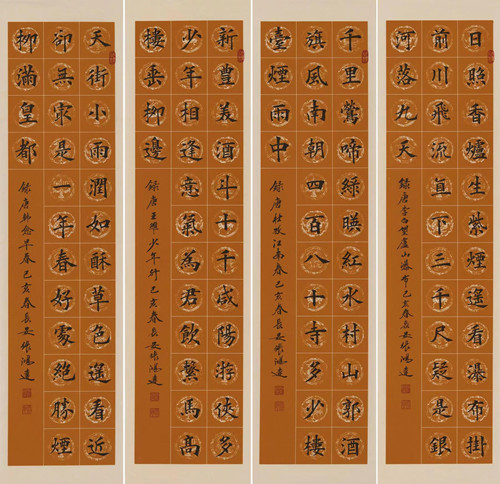 日照香爐生紫煙遙看瀑布掛
前川飛流直下三千尺疑是銀
河落九天
錄唐李白望廬山瀑布己亥春長安張鴻
千里鶯啼綠暎紅水村山郭酒
旗風南朝四百八十寺多少樓
臺煙雨中
錄唐杜牧江南春己亥春長安張鴻
新豐美酒斗十千咸陽游俠多
少年相逢意氣為君飲繫馬高
樓垂柳邊
錄唐王維少年行己亥春長安張鴻
天街小雨潤如酥草色遙看近
卻無冣是一年春好處絕勝煙
柳滿皇都
錄唐韓愈早春己亥春長安張鴻